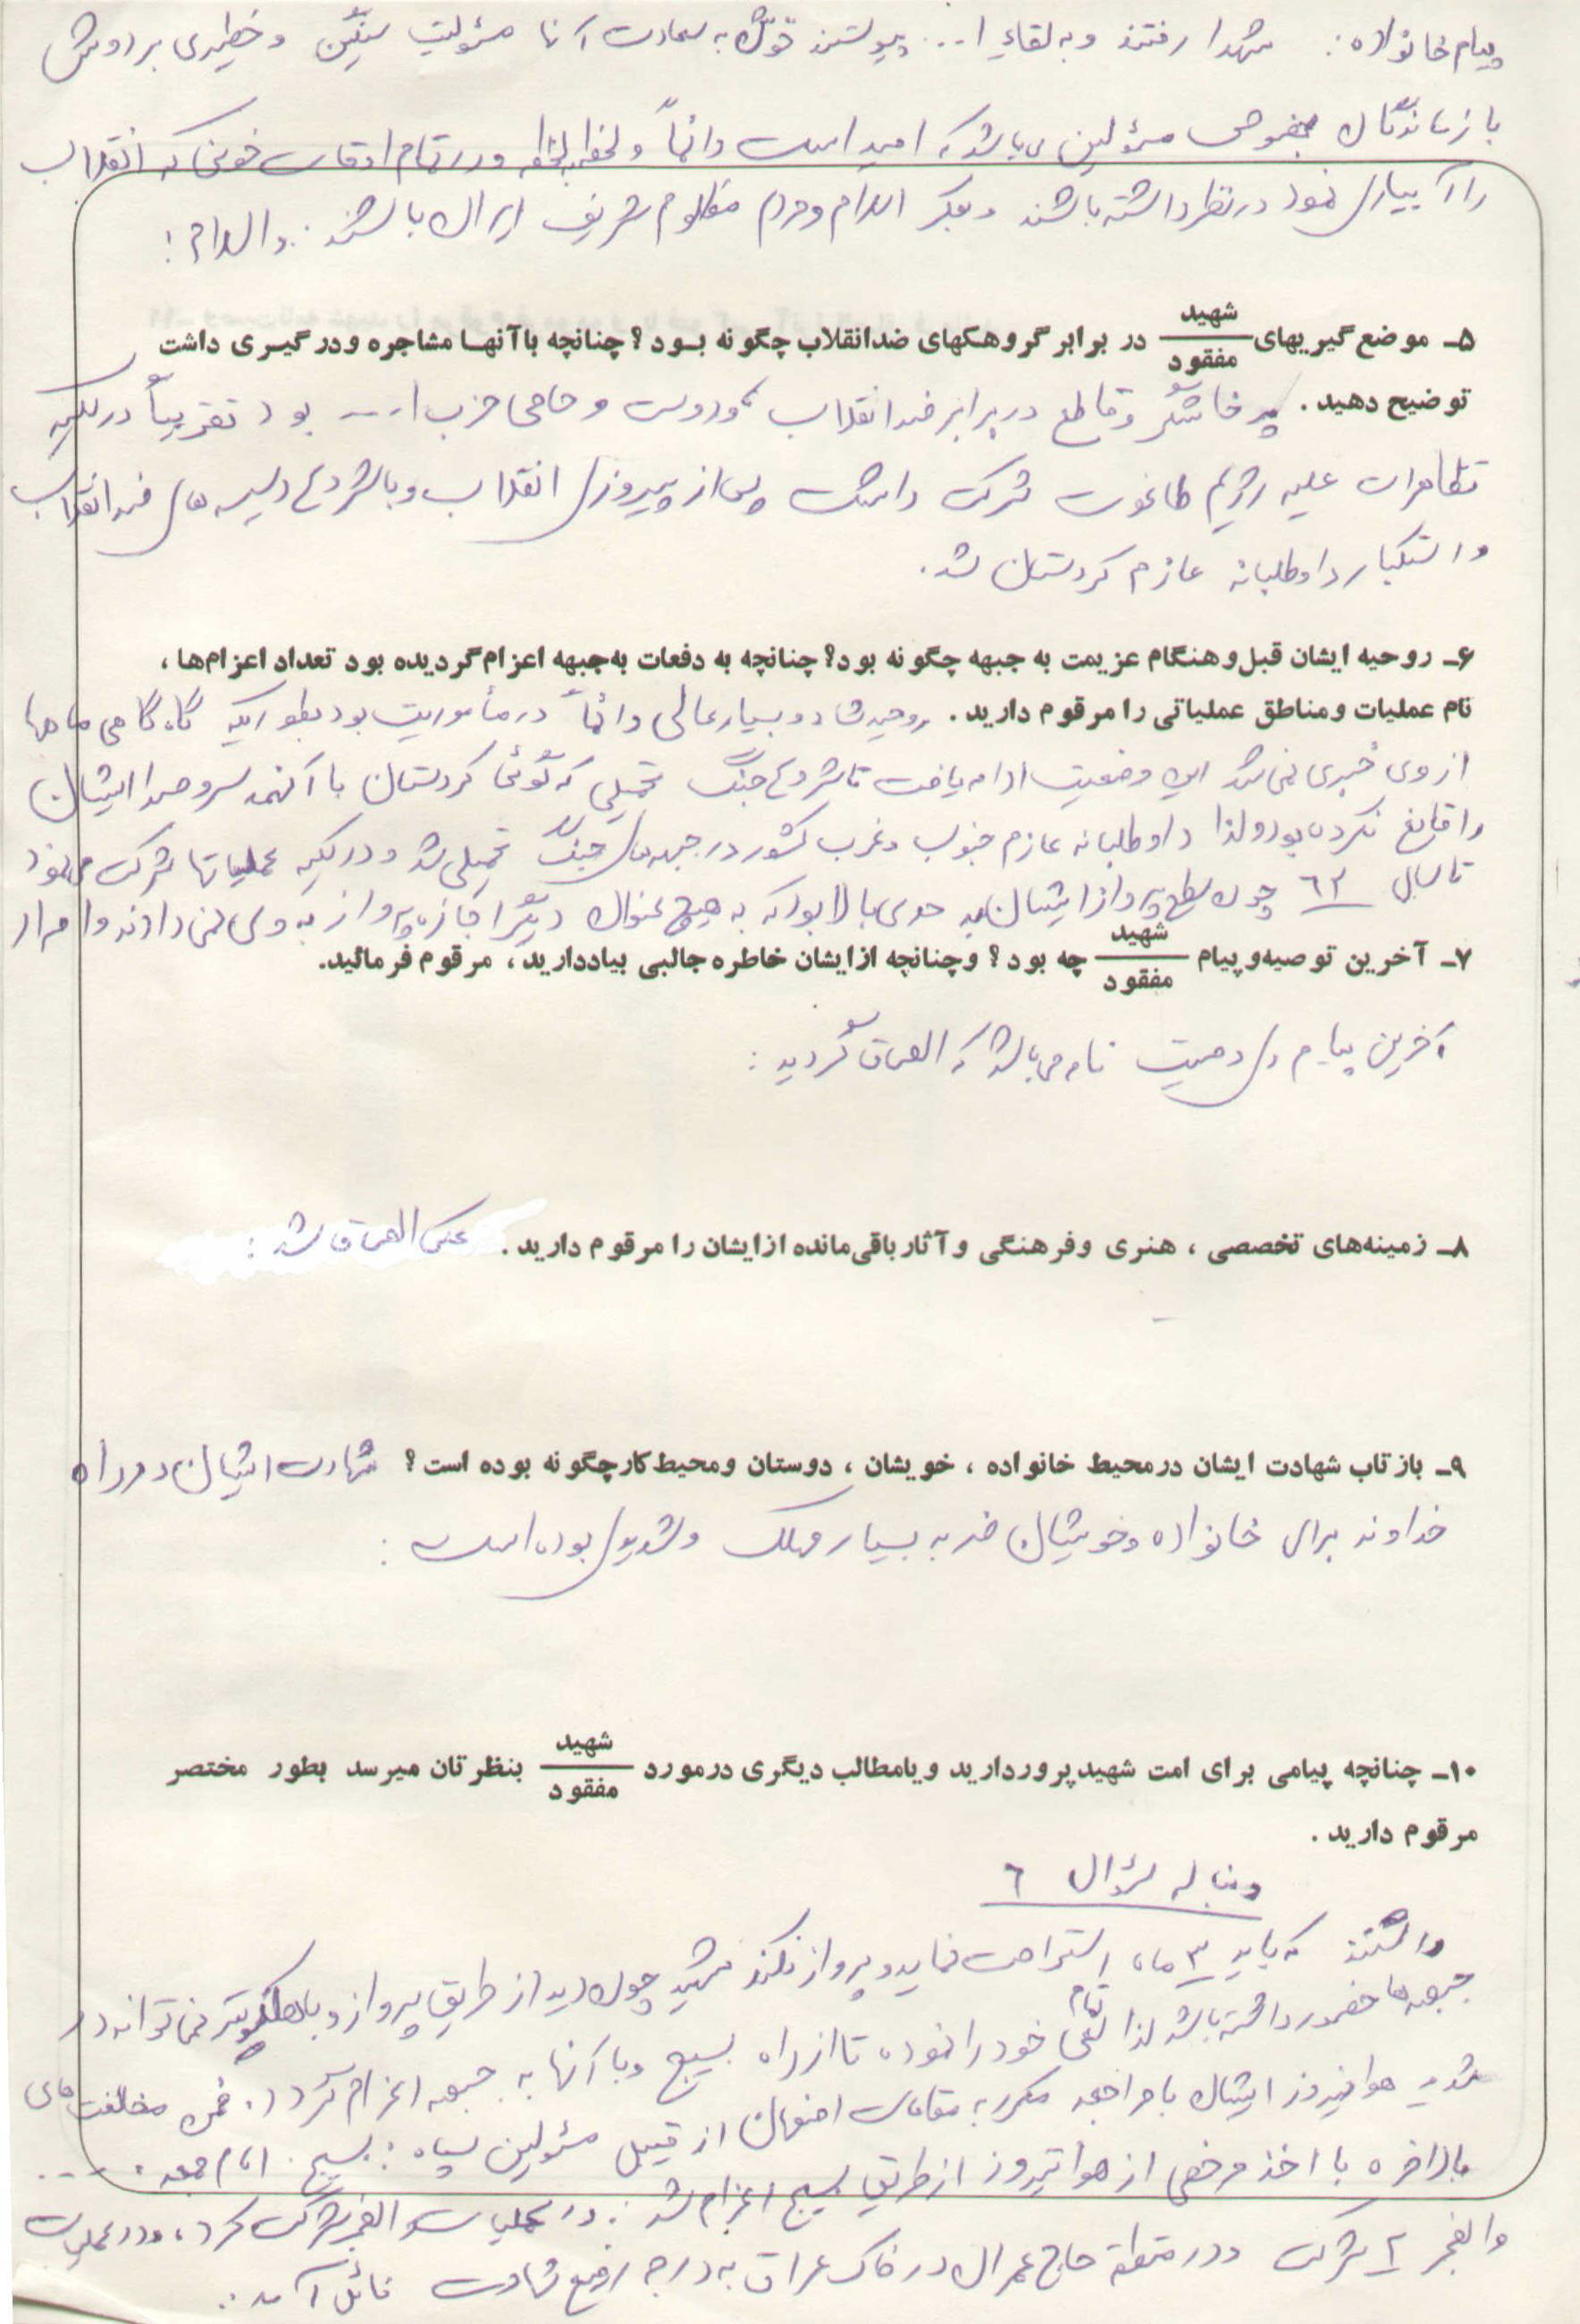 پیام خانواده: شهدا رفتند و به لقاء ا... پیوستند توسّل به سعادت آنها مسئولیت سنگین و خطیری بر دوش
بازماندگان بخصوص مسئولین می‌باشد که امید است دائماً و لحظه بلحظه و در تمام اوقات خونی که انقلاب
را آبیاری نمود در نظر داشته باشند و بفکر اسلام و مردم مظلوم شریف ایران باشند. والسلام!
۵ـ موضع گیریهای شهید / مفقود در برابر گروهکهای ضدانقلاب چگونه بود؟ چنانچه با آنها مشاجره و درگیری داشت
توضیح دهید. پرخاشگر و قاطع در برابر ضد انقلاب و حامی حزب ا... بود تقریباً در کلیه
تظاهرات علیه رژیم طاغوت شرکت داشت پس از پیروزی انقلاب و با شروع دسیسه های ضد انقلاب
و استکبار داوطلبانه عازم کردستان شد.
۶ـ روحیه ایشان قبل و هنگام عزیمت به جبهه چگونه بود؟ چنانچه به دفعات به جبهه اعزام گردیده بود تعداد اعزام‌ها،
نام عملیات و مناطق عملیاتی را مرقوم دارید. روحیه شاد و بسیار عالی دائماً در مأموریت بود بطوریکه گاه گاهی ماهها
از وی خبری نمی‌شد این وضعیت ادامه یافت تا شروع جنگ تحمیلی که گوئی کردستان با آنهمه سر و صدا ایشان
را قانع نکرده بود و لذا داوطلبانه عازم جنوب و غرب کشور در جبهه های جنگ تحمیلی شد و در کلیه عملیاتها شرکت می‌نمود
تا سال ۶۲ چون سطح پرواز ایشان به حدی بالا بود که به هیچ عنوان دیگر اجازه پرواز به وی نمی‌دادند و اصرار
۷ـ آخرین توصیه و پیام شهید / مفقود چه بود؟ و چنانچه از ایشان خاطره جالبی بیاد دارید، مرقوم فرمائید.
آخرین پیام وی وصیت نامه می‌باشد که الصاق گردید:
۸ـ زمینه‌های تخصصی، هنری و فرهنگی و آثار باقی‌مانده از ایشان را مرقوم دارید. عکس الصاق شد:
۹ـ بازتاب شهادت ایشان در محیط خانواده، خویشان، دوستان و محیط کار چگونه بوده است؟ شهادت ایشان در راه
خداوند برای خانواده و خویشان ضربه بسیار مهلک و شدیدی بوده است:
۱۰ـ چنانچه پیامی برای امت شهیدپرور دارید و یا مطالب دیگری در مورد شهید / مفقود بنظرتان میرسد بطور مختصر
مرقوم دارید.
دنباله سؤال ۶
داشتند که باید ۳ ماه استراحت نماید و پرواز نکند شهید چون دید از طریق پرواز و با هلیکوپتر نمی‌تواند در
جبهه‌ها حضور داشته باشد لذا تمام سعی خود را نموده تا از راه بسیج و با آنها به جبهه اعزام گردد. ضمن مخالفت های
شدید هوانیروز ایشان با مراجعه مکرر به مقامات اصفهان از قبیل مسئولین سپاه: بسیج. امام جمعه. ....
بالاخره با اخذ مرخصی از هوانیروز از طریق بسیج اعزام شد. در عملیات والفجر شرکت کرد، و در عملیات
والفجر ۲ شرکت و در منطقه حاج عمران در خاک عراق به درجه رفیع شهادت نائل آمد..